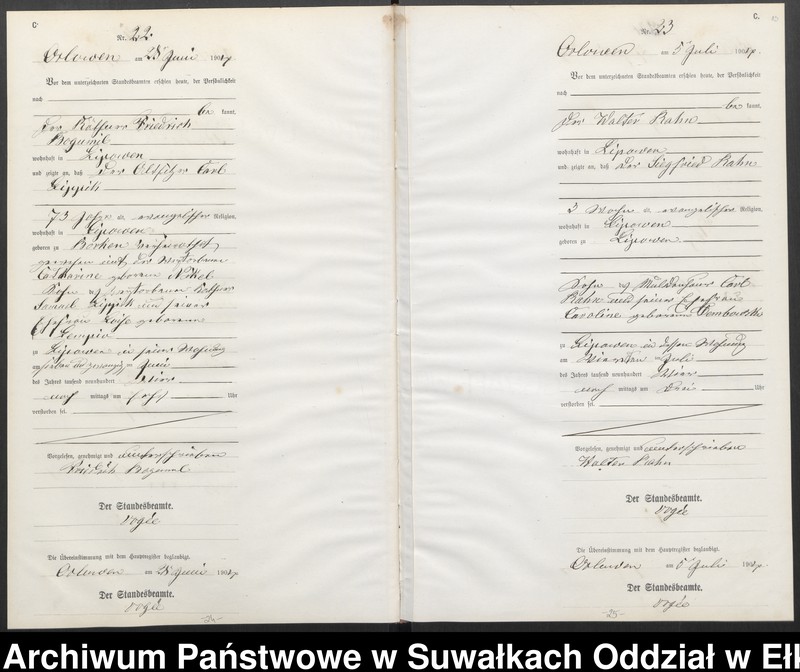 C.
Nr. 22
Orlowen am 28 Juni 1904.
Vor dem unterzeichneten Standesbeamten erschien heute, der Persönlichkeit
nach
be kannt,
der Käthner Friedrich
Bogumil
wohnhaft in Lipowen
und zeigte an, daß der Altsitzer Carl
Lippik
73 Jahre alt, evangelischer Religion,
wohnhaft in Lipowen
geboren zu Borken verheirathet
gewesen mit der verstorbenen
Catharine geborenen Nikel
Sohn des verstorbenen Käthner
Samuel Lippik und seiner
Ehefrau Louise geborenen
zu Lipowen in seiner Wohnung
am sieben und zwanzigsten Juni
des Jahres tausend neunhundert vier
nach mittags um Uhr
verstorben sei.
Vorgelesen, genehmigt und unterschrieben
Friedrich Bogumil
Der Standesbeamte.
Vogée
Die Übereinstimmung mit dem Hauptregister beglaubigt.
Orlowen am 28 Juni 1904.
Der Standesbeamte.
Vogée
C.
Nr. 23
Orlowen am 5 Juli 1904.
Vor dem unterzeichneten Standesbeamten erschien heute, der Persönlichkeit
nach
be kannt,
der Walter Rahn
wohnhaft in Lipowen
und zeigte an, daß der Siegfried Rahn
3 Wochen a evangelischer Religion,
wohnhaft in Lipowen
geboren zu Lipowen
Sohn des Carl
Rahn und seiner Ehefrau
Caroline geborenen
zu Lipowen in dessen Wohnung
am vierten Juli
des Jahres tausend neunhundert vier
nach mittags um drei Uhr
verstorben sei.
Vorgelesen, genehmigt und unterschrieben
Walter Rahn
Der Standesbeamte.
Vogée
Die Übereinstimmung mit dem Hauptregister beglaubigt.
Orlowen am 5 Juli 1904.
Der Standesbeamte.
Vogée
-25-
Archiwum Państwowe w Suwałkach Oddział w Eł